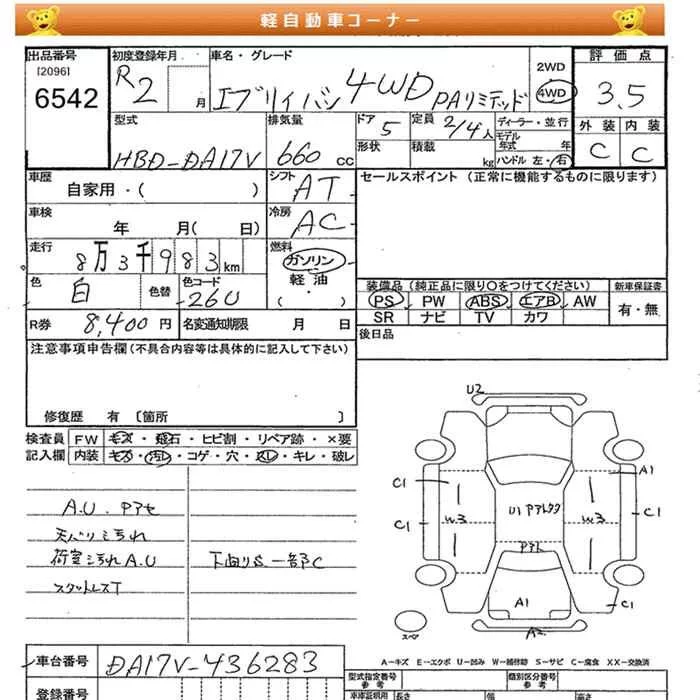 軽自動車コーナー
出品番号
[2096]
6542
初度登録年月
R2 月
車名・グレード
エブリイバン 4WD PAリミテッド
2WD
4WD
評価点
3.5
外装 内装
C C
型式
HBD-DA17V
排気量
660 cc
ドア 5
形状
定員 2/4人
積載 kg
ディーラー・並行
モデル年式 年
ハンドル 左・右
車歴
自家用・( )
シフト AT
セールスポイント (正常に機能するものに限ります)
車検
年 月( 日)
冷房 AC
走行
8万3千983km
燃料
ガソリン
軽油
( ・ )
色 白
色替
色コード
26U
装備品 (純正品に限り○をつけてください)
新車保証書
PS PW ABS エアB AW
SR ナビ TV カワ
有・無
R券 8,400円
名変通知期限 月 日
後日品
注意事項申告欄(不具合内容等は具体的に記入して下さい)
修復歴 有 〔箇所 〕
検査員
記入欄
FW キズ・飛石・ヒビ割・リペア跡・×要
内装 キズ・汚レ・コゲ・穴・スレ・キレ・破レ
A.U. アアセ
天バリ汚れ
荷室汚れA.U
スタットレスT
下回りS、一部C
U2
C1
A1
W3
U1 アアトタク
W3
C1
C1
アアト
A1
C1
スペア
A2
A-キズ E-エクボ U-凹み W-補修跡 S-サビ C-腐食 XX-交換済
車台番号
DA17V-436283
登録番号
型式指定番号
参考
類別区分番号
参考
車庫証明用
長さ
幅
高さ